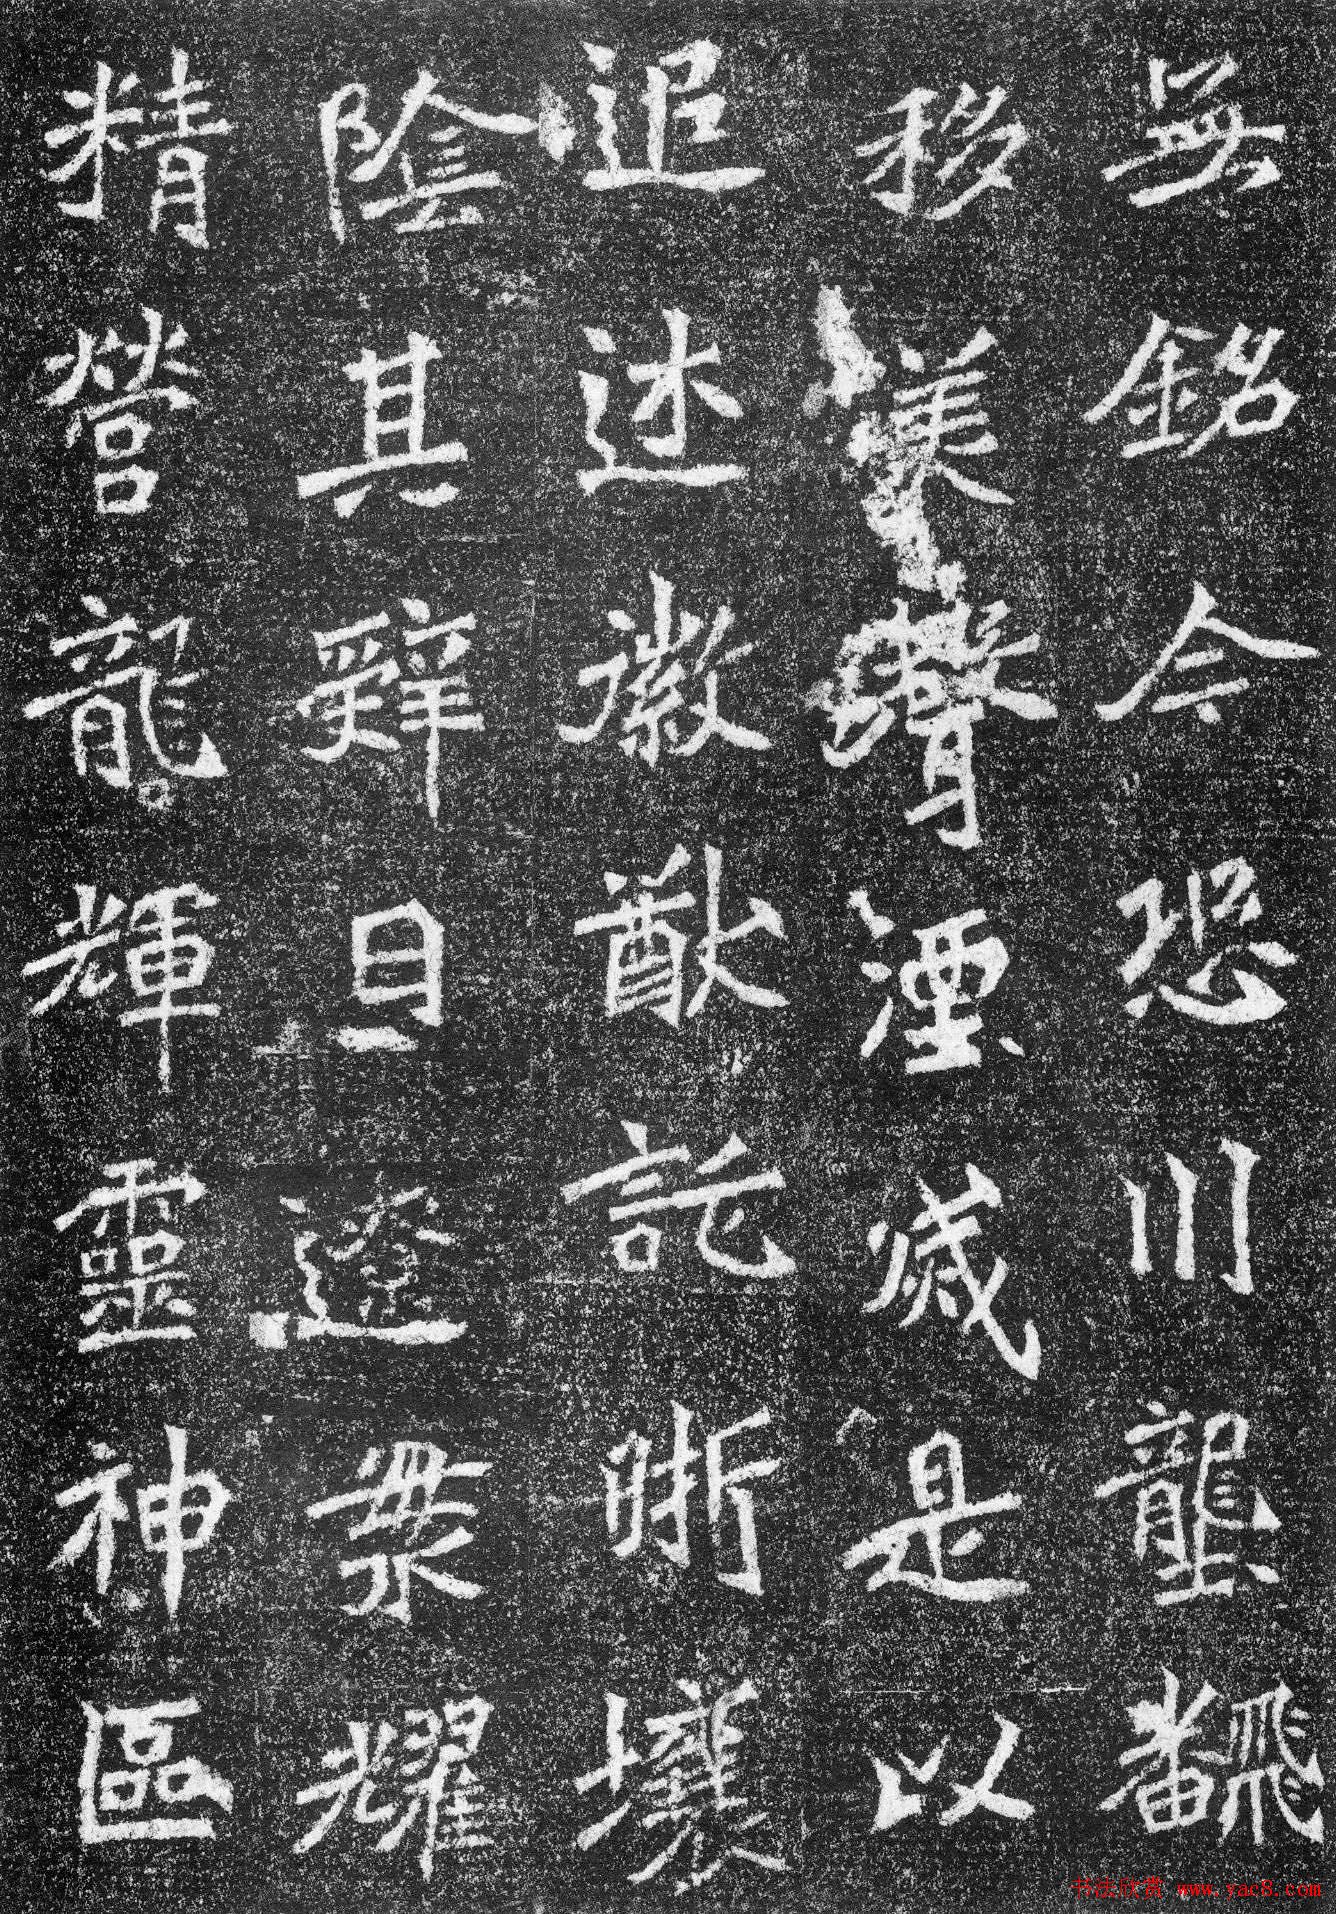 無銘今恐川壟飜
移美聲湮滅是以
追述徽猷託晣壤
陰其辭曰遼眾耀
精營龍輝靈神區
书法欣赏 www.yac8.com